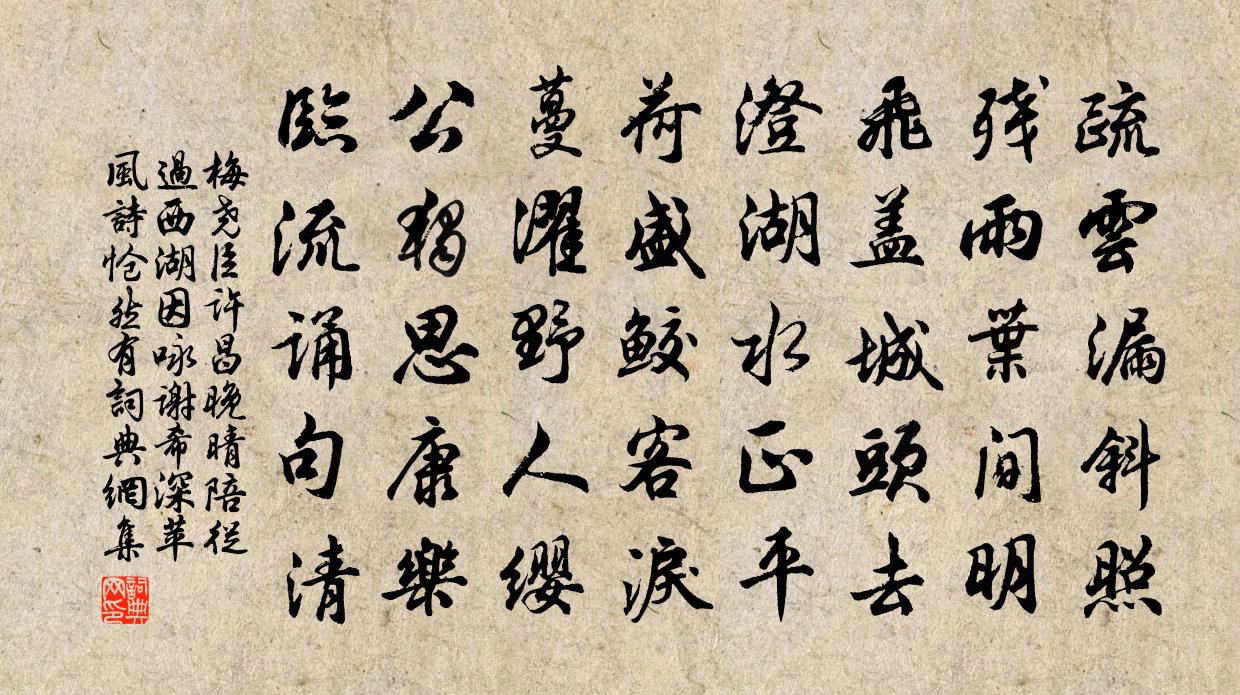 疏雲漏斜照
残雨葉間明
飛盖城頭去
澄湖水正平
荷盛鮫客淚
蔓濯野人纓
公獨思康樂
臨流誦句清
梅堯臣許昌晚晴陪従
過西湖因咏谢希深苹
風詩怆然有詞典網集
詞典
网印